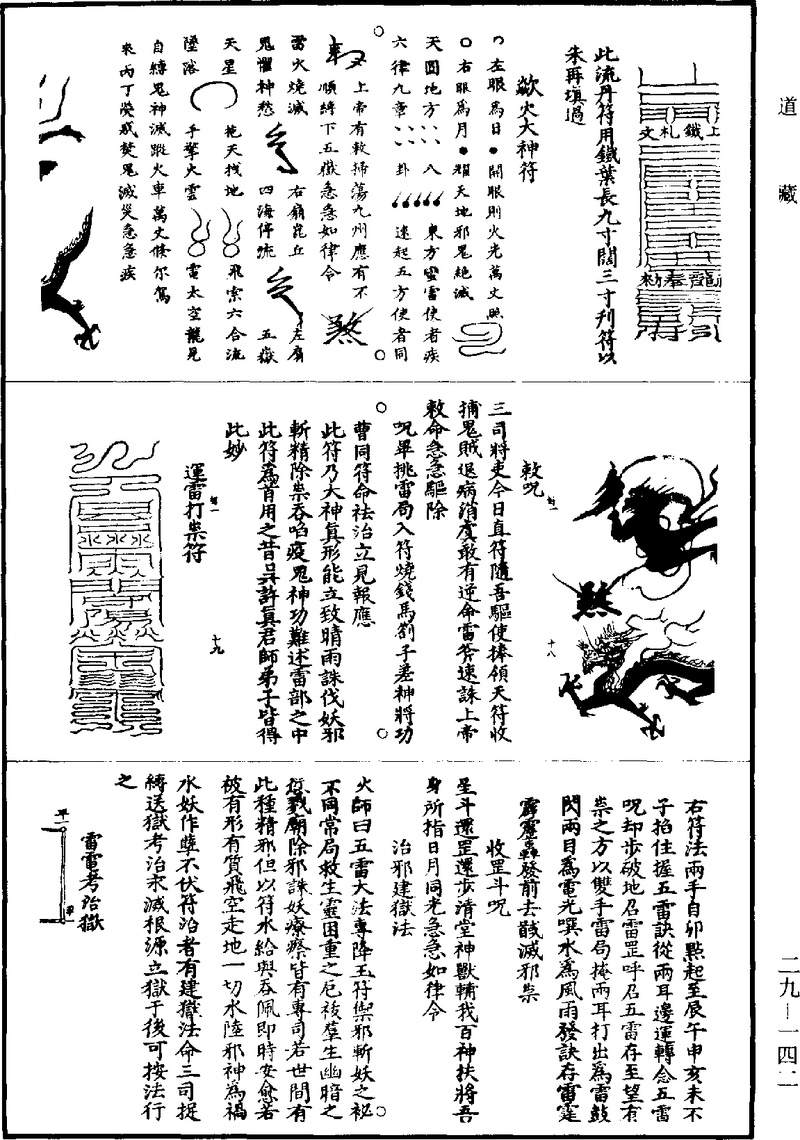 道藏
上鐵札文
龍奉敕
此流丹符用鐵葉長九寸闊三寸刋符以
朱再填過
歘火大神符
左眼爲日
開眼則火光萬丈照
右眼爲月
耀天地邪鬼絶滅
天圓地方
八
東方蠻雷使者疾
六律九章
卦
速起五方使者同
上帝有敕掃蕩九州應有不
順縛下五嶽急急如律令
煞
雷火燒滅
右扇崑丘
左扇
鬼懼神愁
四海停流
五嶽
天星
拖天找地
飛索六合流
墜落
手擎火雲
電太空龍見
自縛鬼神滅蹤火車萬丈倐尔駕
來丙丁熒惑焚鬼滅災急急疾
煞
十八
敕咒
三司將吏今日直符隨吾驅使捧領天符收
捕鬼賊退病消虔敢有逆命雷斧速誅上帝
敕命急急驅除
咒畢挑雷局入符燒錢馬劄子差神將功
曹同符命祛治立見報應
此符乃大神真形能立致晴雨誅伐妖邪
斬精除祟吞啗疫鬼神功難述雷部之中
此符爲首用之昔吳許真君師弟子皆得
此妙
十九
運雷打祟符
右符法兩手自卯㸃起至辰午申亥未不
子掐住握五雷訣從兩耳邊運轉念五雷
咒却步破地召雷罡呼召五雷存至望有
祟之方以雙手雷局掩兩耳打出爲雷鼓
閃兩目爲電光噀水爲風雨發訣存雷霆
霹靂轟發前去戩滅邪祟
收罡斗咒
星斗還罡還步清堂神獸輔我百神扶將吾
身所指日月同光急急如律令
治邪建獄法
火師曰五雷大法專降玉符禦邪斬妖之祕
不同常局救生靈困重之厄祓羣生幽暗之
愆戮廟除邪誅妖療瘵皆有專司若世間有
此種精邪但以符水給與吞佩即時安愈若
被有形有質飛空走地一切水陸邪神爲禍
水妖作孽不伏符治者有建獄法命三司捉
縛送獄考治永滅根源立獄于後可按法行
之
雷霆考治獄
二九—一四二